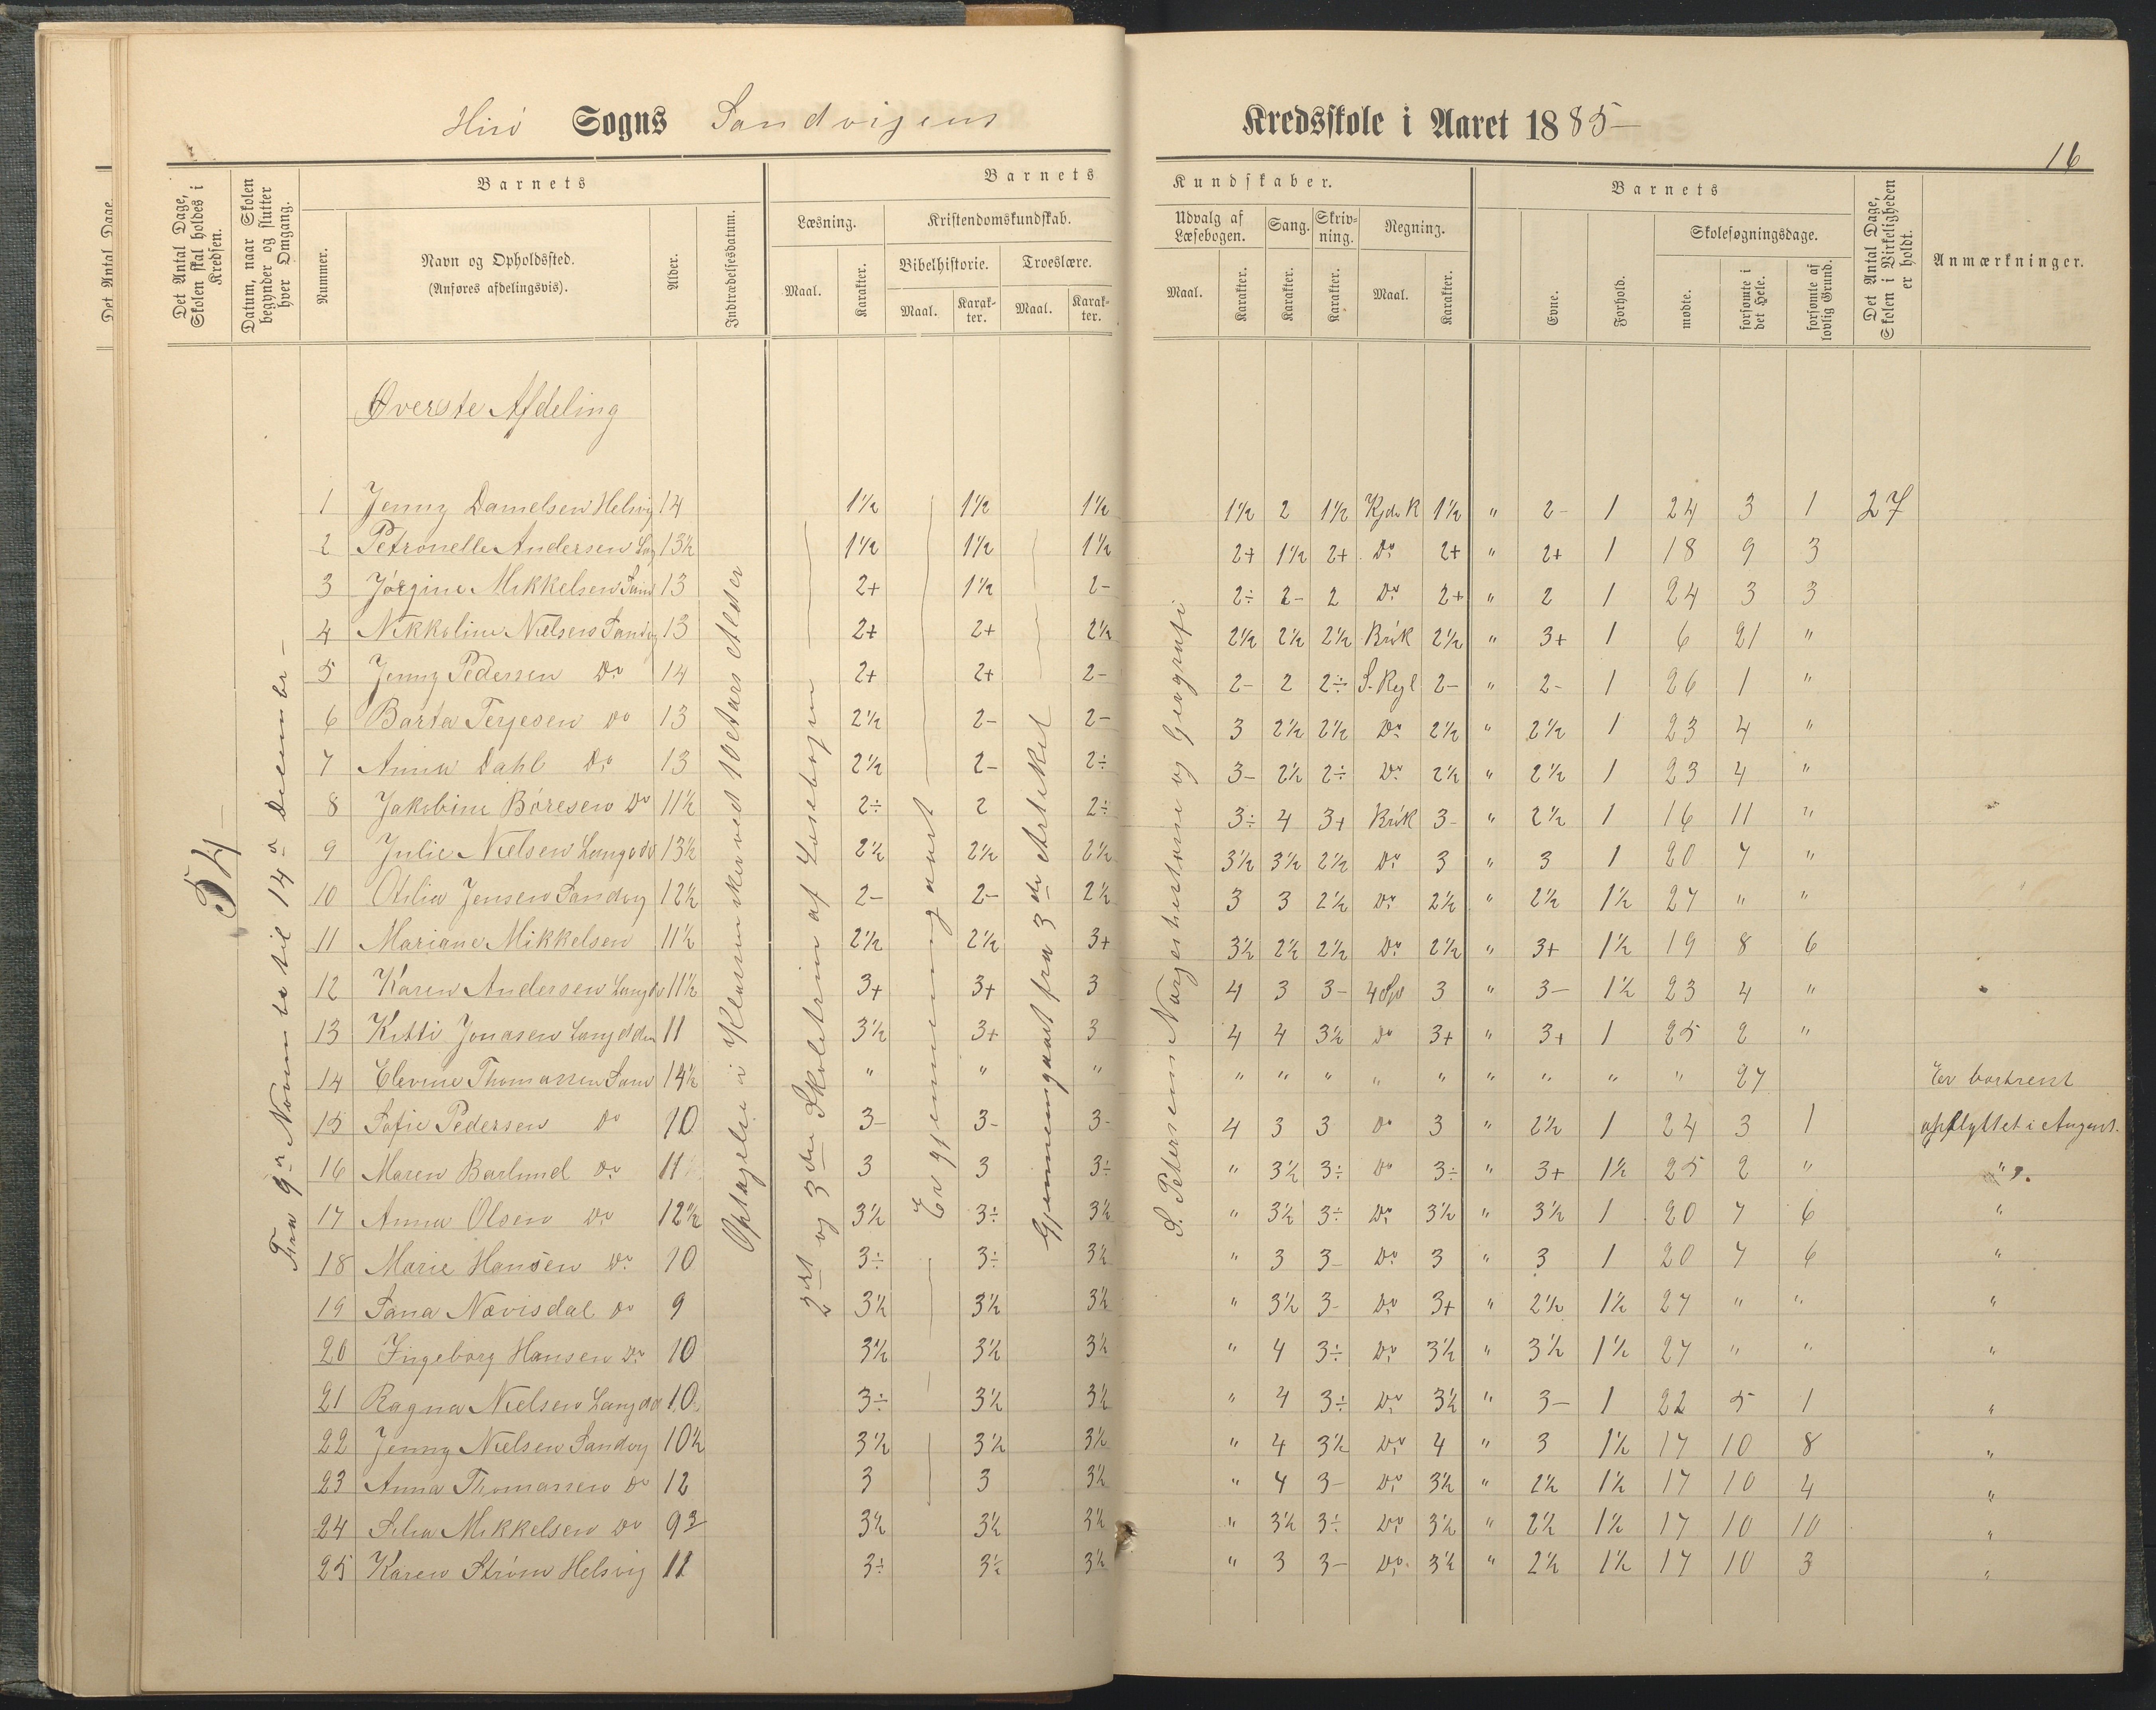 Hisö Sogns Sandvigens Kredsskole i Aaret 1885 —
16
Det Antal Dage
Det Antal Dage, Skolen skal holdes i Kredsen.
Datum, naar Skolen begynder og slutter hver Omgang.
Barnets
Nummer.
Navn og Opholdssted. (Anføres afdelingsvis).
Alder.
Indtrædelsesdatum.
Barnets Kundskaber.
Læsning.
Maal.
Karakter.
Kristendomskundskab.
Bibelhistorie.
Maal.
Karakter.
Troeslære.
Maal.
Karakter.
Udvalg af Læsebogen.
Maal.
Karakter.
Sang.
Karakter.
Skrivning.
Karakter.
Regning.
Maal.
Karakter.
Barnets
Evne.
Forhold.
Skolesøgningsdage.
mødte.
forsømte i det Hele.
forsømte af lovlig Grund.
Det Antal Dage, Skolen i Virkeligheden er holdt.
Anmærkninger.
54 —
Fra 9de November til 14de December —
ved 10 Aars Alder
2det og 3die Skoletrin af Læsebogen
Er gjennemgaaet
Gjennemgaaet fra 3die Artikel
S. Petersens Norgeshistorie og Geografi
Øverste Afdeling
1 Jenny Danielsen Helvig 14 1½ 1½ 1½ 1½ 2 1½ 1½ " 2- 1 24 3 1 27
2 Petronelle Andersen 13½ 1½ 1½ 1½ 2+ 1½ 2+ Do 2+ " 2+ 1 18 9 3
3 Jørgine Mikkelsen Sand 13 2+ 1½ 2- 2÷ 2- 2 Do 2+ " 2 1 24 3 3
4 Nikkoline Nielsen Sandvg 13 2+ 2+ 2½ 2½ 2½ 2½ Brök 2½ " 3+ 1 6 21 "
5 Jenny Pedersen Do 14 2+ 2+ 2- 2- 2 2÷ S. Regl 2- " 2- 1 26 1 "
6 Barta Terjesen Do 13 2½ 2- 2- 3 2½ 2½ Do 2½ " 2½ 1 23 4 "
7 Anna Dahl Do 13 2½ 2- 2÷ 3- 2½ 2÷ Do 2½ " 2½ 1 23 4 "
8 Jakobine Böresen Do 11½ 2÷ 2 2÷ 3÷ 4 3+ Brök 3- " 2½ 1 16 11 "
9 Julie Nielsen 13½ 2½ 2½ 2½ 3½ 3½ 2½ Do 3 " 3 1 20 7 "
10 Jensen Sandvg 12½ 2- 2- 2½ 3 3 2½ Do 2½ " 2½ 1½ 27 " "
11 Mariane Mikkelsen 11½ 2½ 2½ 3+ 3½ 2½ 2½ Do 2½ " 3+ 1½ 19 8 6
12 Karen Andersen 11½ 3+ 3+ 3 4 3 3- 3 " 3- 1½ 23 4 "
13 Kitti Jonasen 11 3½ 3+ 3 4 4 3½ Do 3+ " 3+ 1 25 2 "
14 Elevine Thomassen Sand 14½ " " " " " " " " " " " " 27 Er bortreist
15 Sofie Pedersen Do 10 3- 3- 3- 4 3 3 Do 3 " 2½ 1 24 3 1 opflyttet i August.
16 Maren Barlund Do 11 3 3 3÷ " 3½ 3÷ Do 3÷ " 3+ 1½ 25 2 " "
17 Anna Olsen Do 12½ 3½ 3÷ 3½ " 3½ 3÷ Do 3½ " 3½ 1 20 7 6 "
18 Marie Hansen Do 10 3÷ 3÷ 3½ " 3 3- Do 3 " 3 1 20 7 6 "
19 Sana Nævisdal Do 9 3½ 3½ 3½ " 3½ 3- Do 3+ " 2½ 1½ 27 " " "
20 Ingeborg Hansen Do 10 3½ 3½ 3½ " 4 3÷ Do 3½ " 3½ 1½ 27 " " "
21 Ragna Nielsen 10 3÷ 3½ 3½ " 4 3÷ Do 3½ " 3- 1 22 5 1 "
22 Jenny Nielsen Sandvg 10½ 3½ 3½ 3½ " 4 3½ Do 4 " 3 1½ 17 10 8 "
23 Anna Thomassen Do 12 3 3 3½ " 4 3- Do 3½ " 2½ 1½ 17 10 4 "
24 Mikkelsen Do 9 3½ 3½ 3½ " 3½ 3÷ Do 3½ " 2½ 1½ 17 10 10 "
25 Karen Ström Helsvig 11 3÷ 3½ 3½ " 3 3- Do 3½ " 2½ 1½ 17 10 3 "